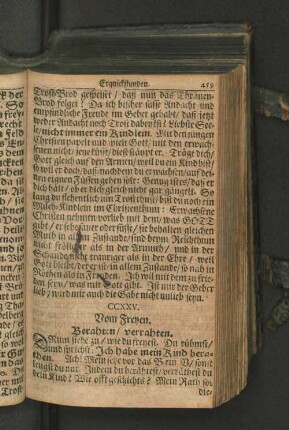 Erquickstunden. 459
Trost-Brod gespeiset / daß nun das Thränen-
Brod folget? Da ich bißher süsse Andacht und
empfindliche Freude im Gebet gehabt / daß jetzt
weder Andacht noch Trost dabey ist? Liebste See-
le / nicht immer ein Kindlein. Mit den jungen
Christen papelt und spielt Gott / mit den erwach-
senen nicht
Gott gleich auf den Armen / weil du ein Kind bist /
will er doch / daß nachdem du erwachsen / auf dei-
nen eignen Füssen gehen solt: Genug ists / daß er
dich hält / ob er dich gleich nicht
Christen nehmen vorlieb mit dem / was GOTT
gibt / es sey sauer oder süsse / sie behalten gleichen
Muth in allem Zustande / sind beym Reichthum
nicht frölicher als in der Armuth / und in der
Schande nicht trauriger als in der Ehre / weil
Gott bleibet / der er ist in allem Zustande / so nah in
Nöthen als in Freuden. Ich wil mit dem zu frie-
den seyn / was mir Gott gibt. Ist mir der Geber
lieb / wird mir auch die Gabe nicht unlieb seyn.
CCXXV.
Vom Freyen.
Berahten / verrahten.
DRum siehe zu / wie du freyest. Du rühmst /
und sprichst: Ich habe mein Kind bera-
then. Ach! Mein setze vor das Be ein V / so
leugst du nur. Indem du beräthest / verräthest du
dein Kind? Wie offt geschichts? Mein Rath
die-